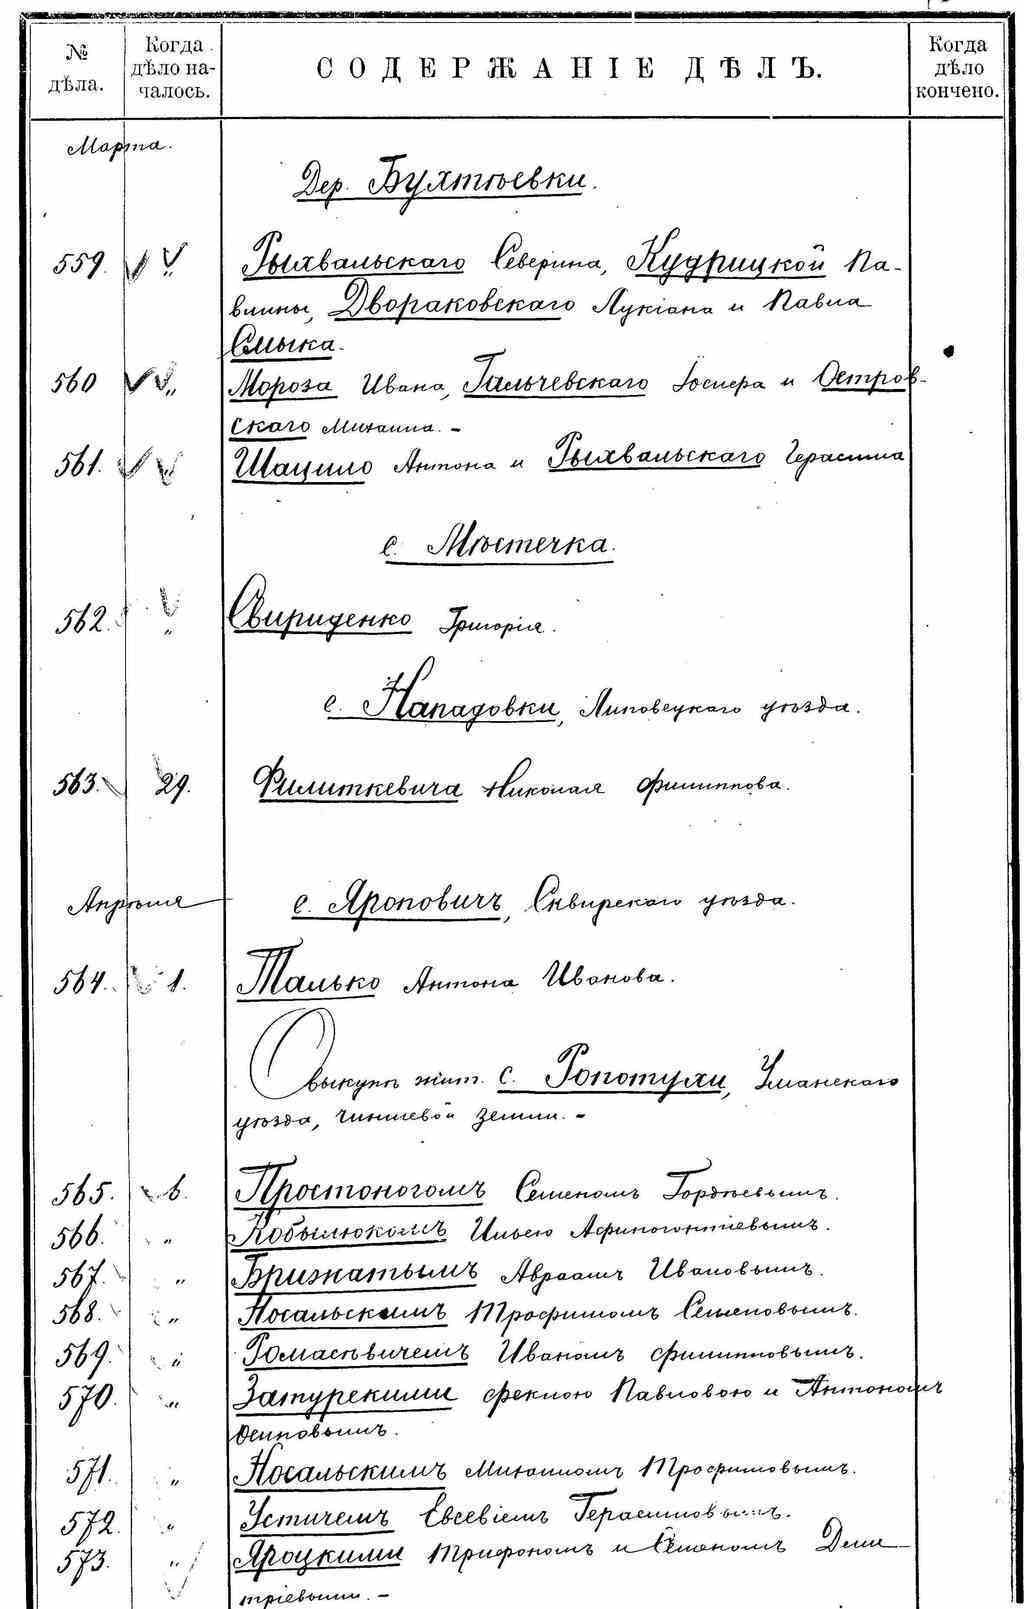 № дѣла.
Когда дѣло началось.
СОДЕРЖАНІЕ ДѢЛЪ.
Когда дѣло кончено.
Марта.
Дер. Бухтѣевки.
559. " Рыхвальскаго Северина, Кудрицкой Па-
влины, Двораковскаго Лукіана и Павла
Смыка.
560 " Мороза Ивана, Гальчевскаго Іосифа и Остров-
скаго Михаила. -
561. " Шацило Антона и Рыхвальскаго Герасима
с. Мѣстечка.
562. " Свириденко Григорія.
с. Нападовки, Липовецкаго уѣзда.
563. 29. Филиткевича Николая Филиппова.
Апрѣля
с. Яроповичъ, Сквирскаго уѣзда.
564. 1. Талько Антона Иванова.
О выкупѣ жит. с. Ропотухи, Уманскаго
уѣзда, чиншевой земли. -
565. 6. Простоногомъ Семеномъ Гордѣевымъ.
566. " Кобылюкомъ Ильею Афиногентіевымъ.
567. " Брижатымъ Авраамъ Ивановымъ.
568. " Носальскимъ Трофимомъ Семеновымъ.
569. " Ромасевичемъ Иваномъ Филипповымъ.
570. " Затурскими Феклою Павловою и Антономъ
Осиповымъ.
571. " Носальскимъ Михаиломъ Трофимовымъ.
572. " Устичемъ Евсевіемъ Герасимовымъ.
573. " Яроцкими Трифономъ и Семеномъ Диме-
тріевыми. -